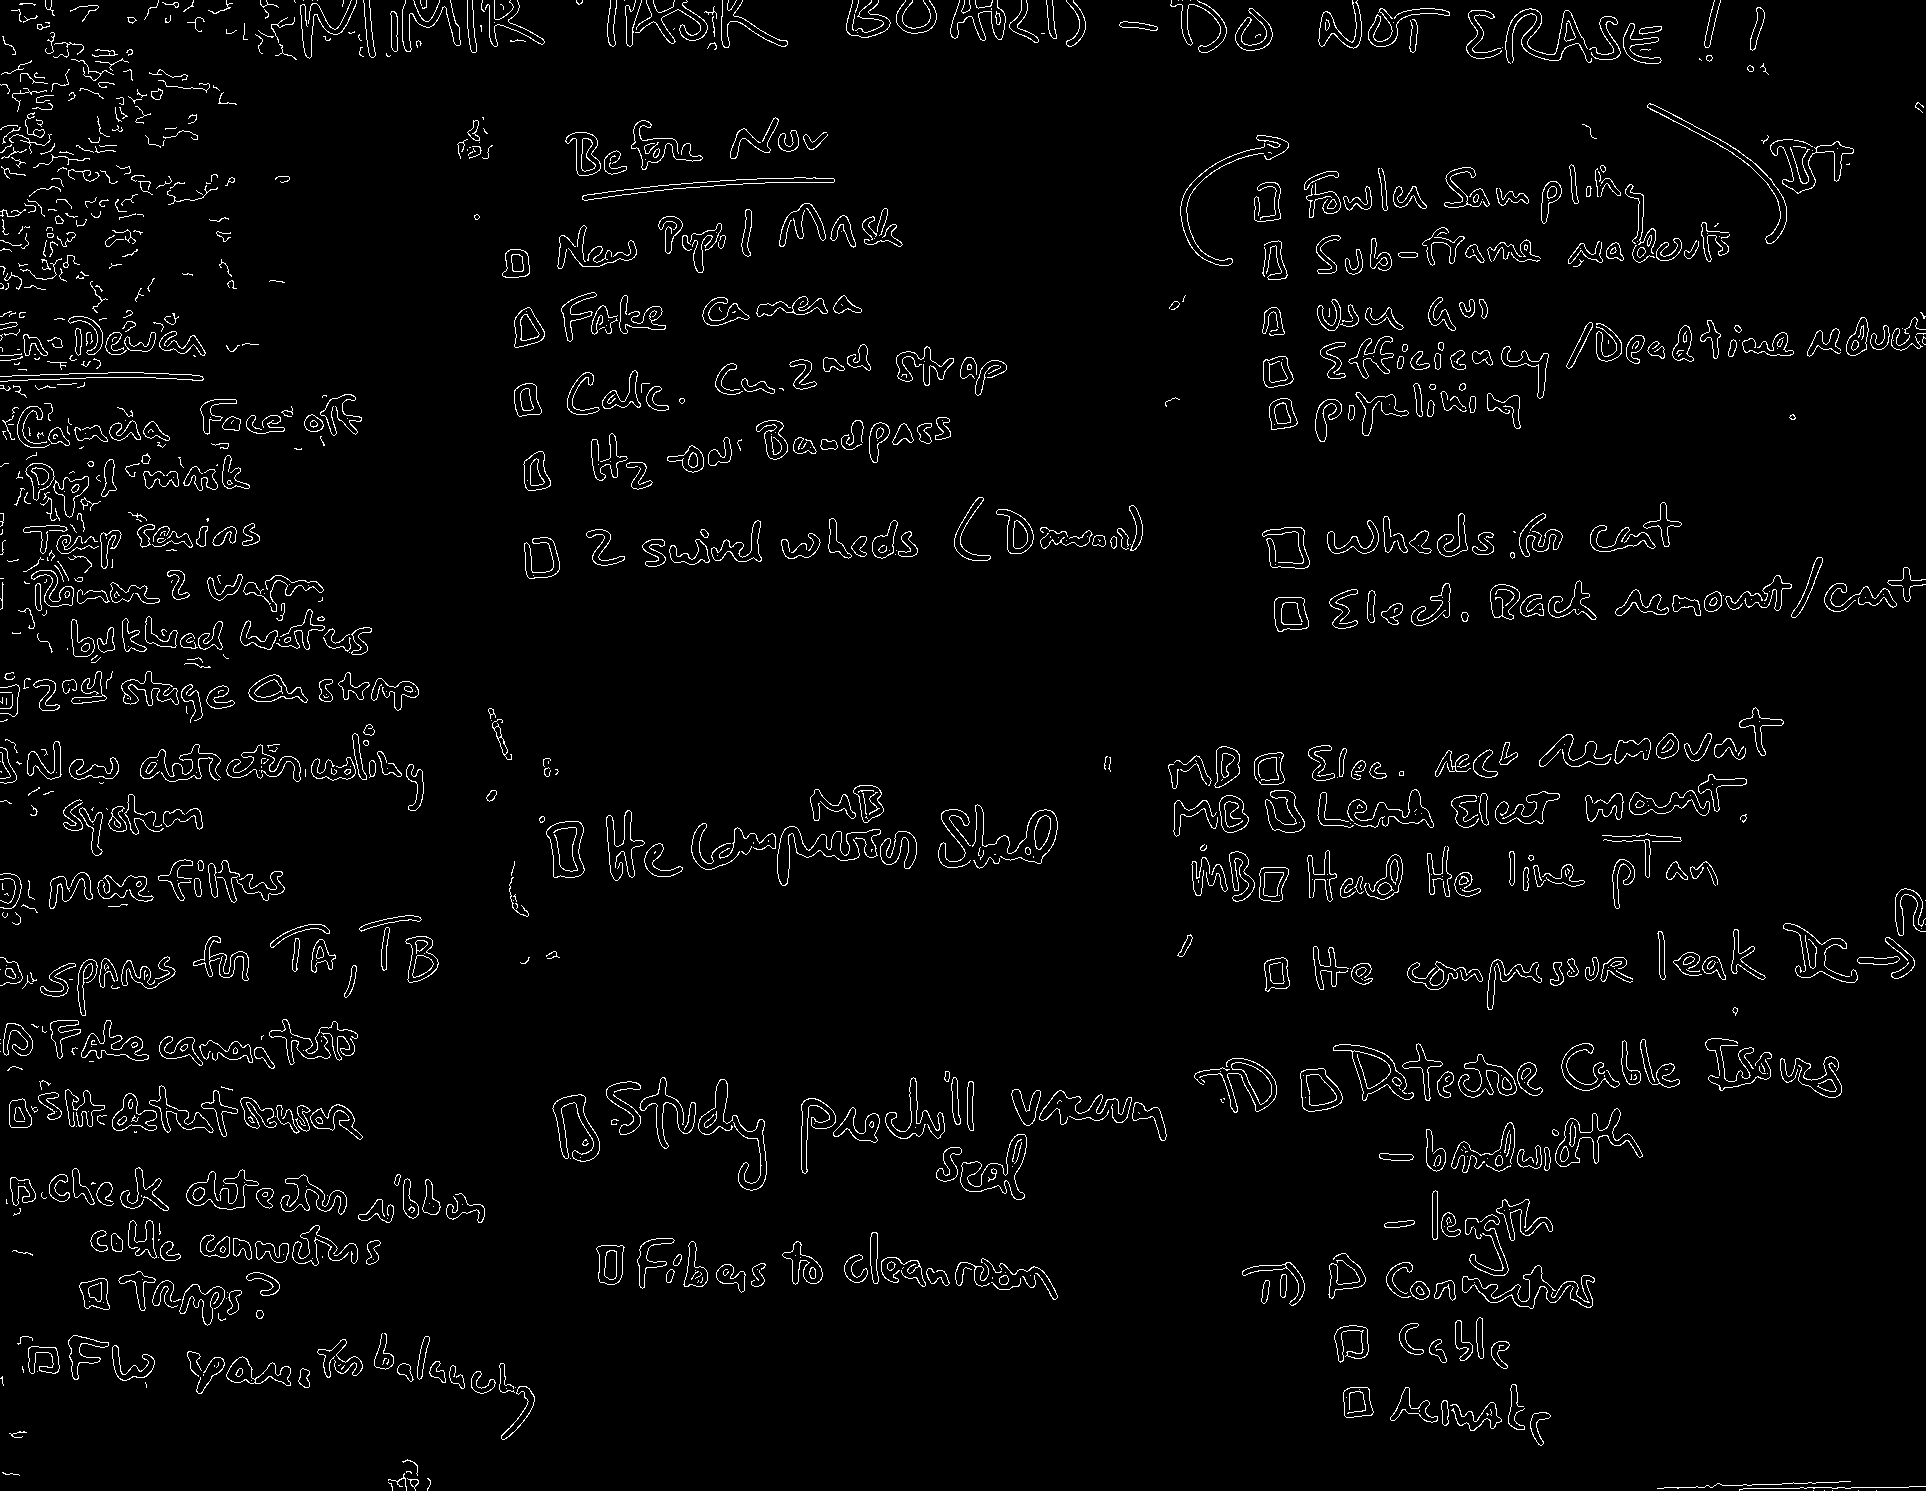 MIMIR TASK BOARD - DO NOT ERASE!!
In-Dewar
Camera Face off
Pupil mask
Temp sensors
Remove 2 warm
bulkhead heaters
2nd stage Cu strap
New detector cooling
system
More filters
Spares for TA, TB
Fake camera tests
detent sensor
Check detector ribbon
cable connectors
Temps?
FW balancing
Before Nov
New Pupil Mask
Fake camera
Calc. Cu. 2nd strap
H2-on Bandpass
2 swivel wheels
MB
He Compressor Shed
Study prechill vacuum
seal
Fibers to cleanroom
Fowler Sampling
Sub-frame readouts
User GUI
Efficiency / Deadtime reduct
pipelining
Wheels for cart
Elect. Rack remount/cart
MB Elec. rack remount
MB Leach Elect mount.
MB Hard He line plan
He compressor leak DC →
TD Detector Cable Issues
- bandwidth
- length
TD Connectors
Cable
remake